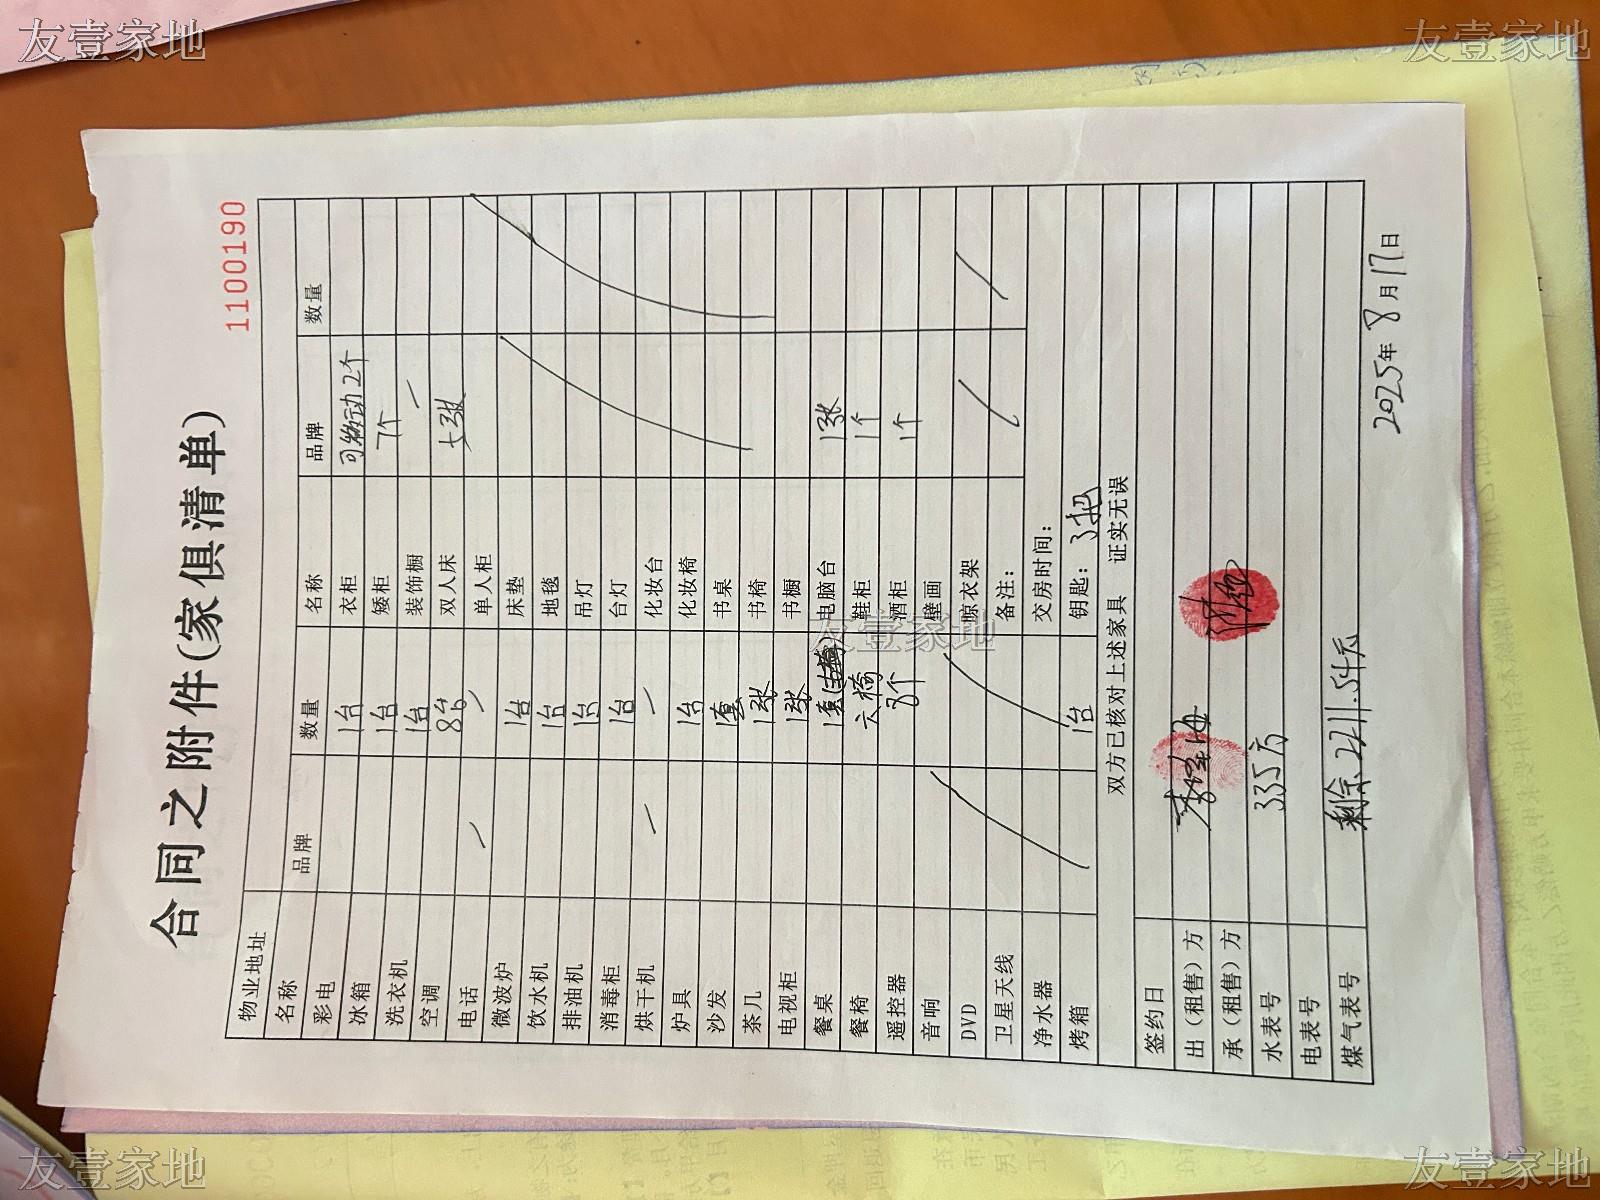 友壹家地
友壹家地
合同之附件(家俱清单)
1100190
物业地址
名称 品牌 数量 名称 品牌 数量
彩电 1台 衣柜 可移动2个
冰箱 1台 矮柜 7个
洗衣机 1台 装饰橱
空调 8台 双人床 七张
电话 单人柜
微波炉 1台 床垫
饮水机 1台 地毯
排油机 1台 吊灯
消毒柜 1台 台灯
烘干机 化妆台
炉具 1台 化妆椅
沙发 1套 书桌
茶几 1张 书椅
电视柜 1张 书橱
餐桌 1套 电脑台 1张
餐椅 六椅 鞋柜 1个
遥控器 8个 酒柜 1个
音响 壁画
DVD 晾衣架
卫星天线 备注:
净水器 交房时间:
烤箱 1台 钥匙: 3把
双方已核对上述家具 证实无误
签约日
出(租售)方
承(租售)方
水表号 335方
电表号
煤气表号 剩余2211.54元
2025年8月17日
友壹家地
友壹家地
友壹家地